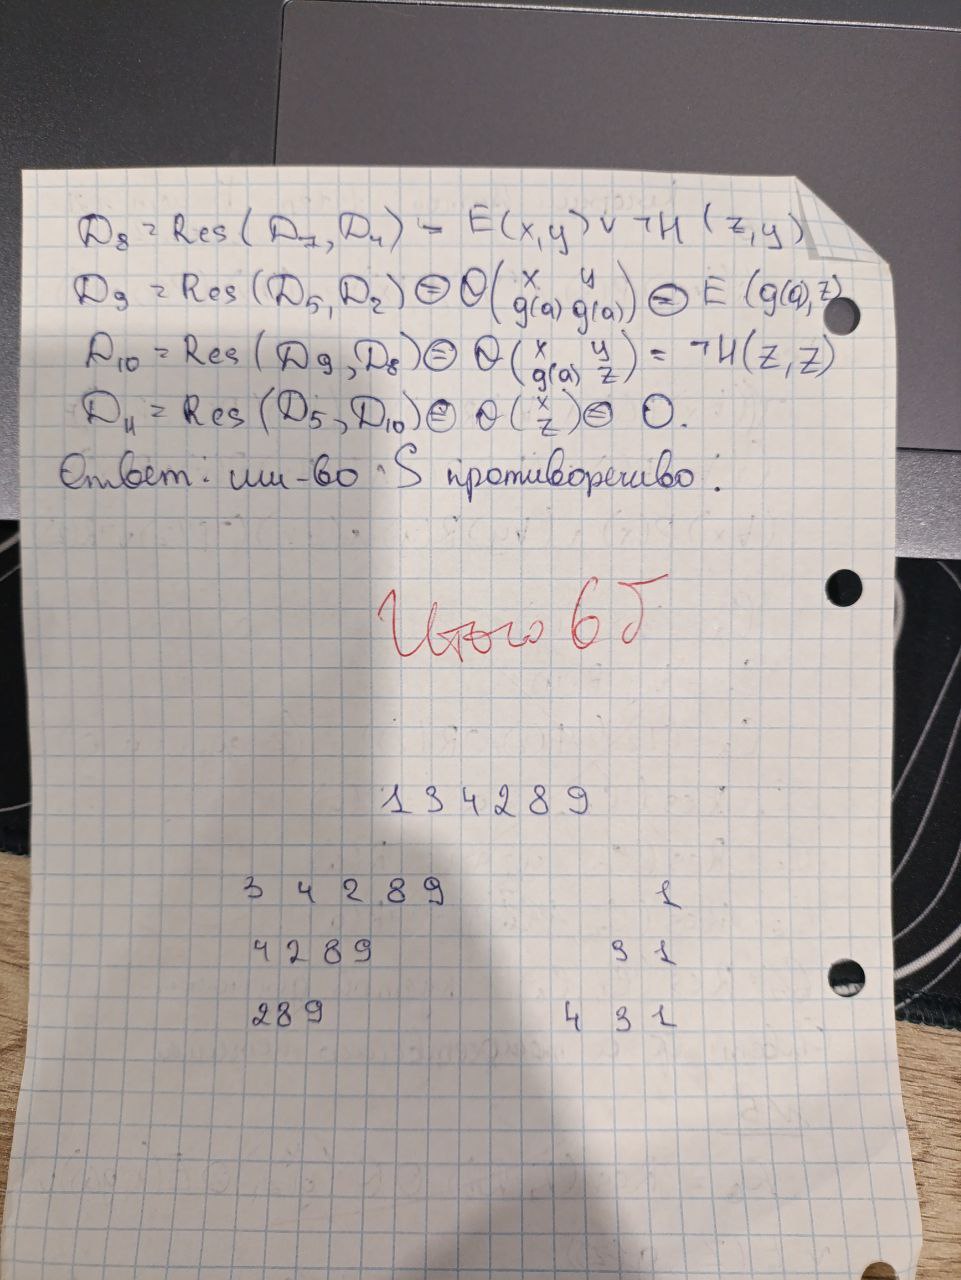 D₈ = Res ( D₇, D₄ ) = E(x,y) ∨ ¬H (z,y)
D₉ = Res (D₅, D₂) ⊜ Θ( x y / g(a) g(a) ) ⊜ E (g(a),z)
D₁₀ = Res ( D₉ , D₈) ⊜ Θ ( x y / g(a) z ) = ¬H(z,z)
D₁₁ = Res (D₅, D₁₀) ⊜ Θ ( x / z ) ⊜ O.
Ответ: мн-во S противоречиво.
Итого 6б
1 3 4 2 8 9
3 4 2 8 9 1
4 2 8 9 3 1
2 8 9 4 3 1